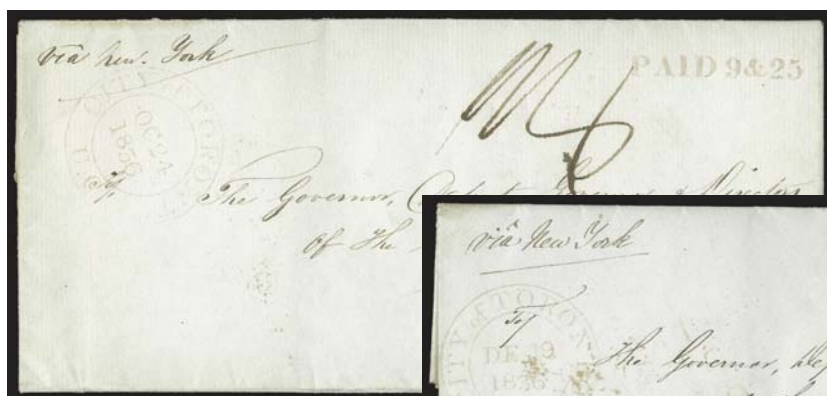 via New. York
PAID 9&25
CITY of TORONTO
OC 24
1836
U.C
To/
The Governor, Directors
Of The
via New York
CITY of TORON
DE 19
1836
To/
The Governor, Dep